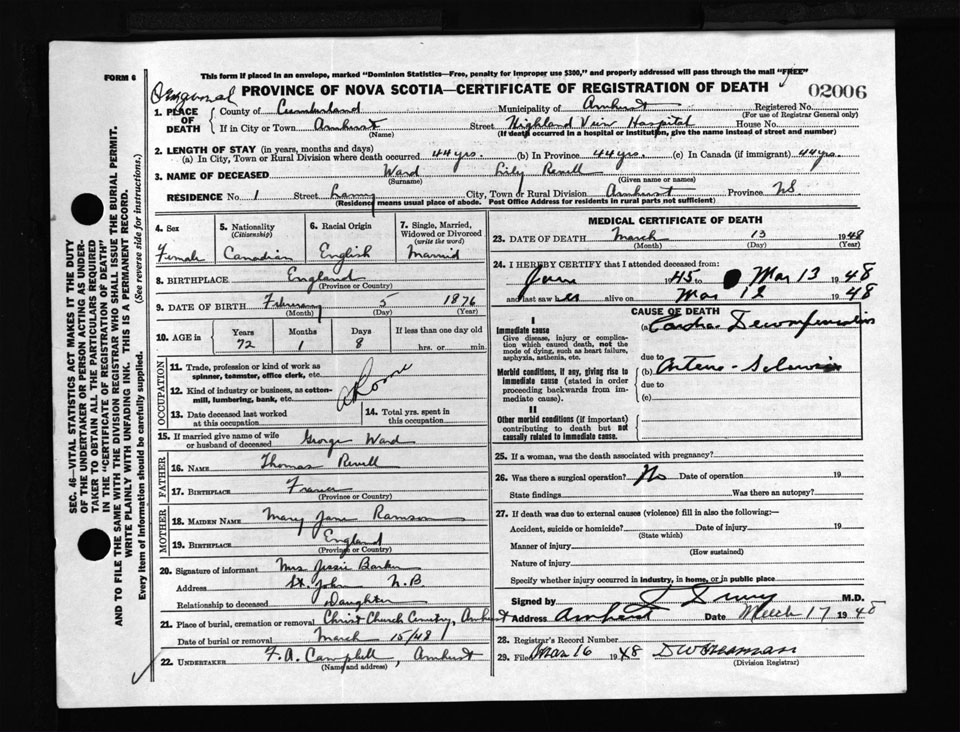 FORM 6
This form if placed in an envelope, marked "Dominion Statistics—Free, penalty for improper use $300," and properly addressed will pass through the mail "FREE"
PROVINCE OF NOVA SCOTIA—CERTIFICATE OF REGISTRATION OF DEATH
02006
1. PLACE OF DEATH
County of Cumberland Municipality of Amherst Registered No.
(For use of Registrar General only)
If in City or Town Amherst Street Highland View Hospital House No.
(Name) (If death occurred in a hospital or institution, give the name instead of street and number)
2. LENGTH OF STAY (in years, months and days)
(a) In City, Town or Rural Division where death occurred 44 yrs. (b) In Province 44 yrs. (c) In Canada (if immigrant) 44 yrs.
3. NAME OF DECEASED Ward Lily Revell
(Surname) (Given name or names)
RESIDENCE No. 1 Street City, Town or Rural Division Amherst Province NS
(Residence means usual place of abode. Post Office Address for residents in rural parts not sufficient)
4. Sex
Female
5. Nationality
(Citizenship)
Canadian
6. Racial Origin
English
7. Single, Married, Widowed or Divorced
(write the word)
Married
8. BIRTHPLACE England
(Province or Country)
9. DATE OF BIRTH February 5 1876
(Month) (Day) (Year)
10. AGE in
Years Months Days If less than one day old
72 1 8 hrs. or min.
OCCUPATION
11. Trade, profession or kind of work as spinner, teamster, office clerk, etc.
12. Kind of industry or business, as cotton-mill, lumbering, bank, etc.
13. Date deceased last worked at this occupation
14. Total yrs. spent in this occupation
15. If married give name of wife or husband of deceased George Ward
FATHER
16. NAME Thomas Revell
17. BIRTHPLACE France
(Province or Country)
MOTHER
18. MAIDEN NAME Mary Jane Ramson
19. BIRTHPLACE England
(Province or Country)
20. Signature of informant Mrs Jessie Barker
Address St. John N.B.
Relationship to deceased Daughter
21. Place of burial, cremation or removal Christ Church Cemetery, Amherst
Date of burial or removal March 15/48
22. UNDERTAKER F. A. Campbell, Amherst
(Name and address)
MEDICAL CERTIFICATE OF DEATH
23. DATE OF DEATH March 13 1948
(Month) (Day) (Year)
24. I HEREBY CERTIFY that I attended deceased from:
1945 to Mar 13 1948
and last saw her alive on Mar 12 1948
CAUSE OF DEATH
I
Immediate cause
Give disease, injury or complication which caused death, not the mode of dying, such as heart failure, asphyxia, asthenia, etc.
(a) Cardiac Decompensation
due to
Morbid conditions, if any, giving rise to immediate cause (stated in order proceeding backwards from immediate cause)
(b) Arterio-Sclerosis
due to
(c)
II
Other morbid conditions (if important) contributing to death but not causally related to immediate cause.
25. If a woman, was the death associated with pregnancy?
26. Was there a surgical operation? No Date of operation 19
State findings Was there an autopsy?
27. If death was due to external causes (violence) fill in also the following:—
Accident, suicide or homicide? Date of injury 19
(State which)
Manner of injury
(How sustained)
Nature of injury
Specify whether injury occurred in industry, in home, or in public place
Signed by M.D.
Address Amherst Date March 17 1948
28. Registrar's Record Number
29. Filed Mar 16 1948
(Division Registrar)
SEC. 46—VITAL STATISTICS ACT MAKES IT THE DUTY
OF THE UNDERTAKER OR PERSON ACTING AS UNDER-
TAKER TO OBTAIN ALL THE PARTICULARS REQUIRED
IN THE "CERTIFICATE OF REGISTRATION OF DEATH"
AND TO FILE THE SAME WITH THE DIVISION REGISTRAR WHO SHALL ISSUE THE BURIAL PERMIT.
WRITE PLAINLY WITH UNFADING INK. THIS IS A PERMANENT RECORD.
Every item of information should be carefully supplied. (See reverse side for instructions.)